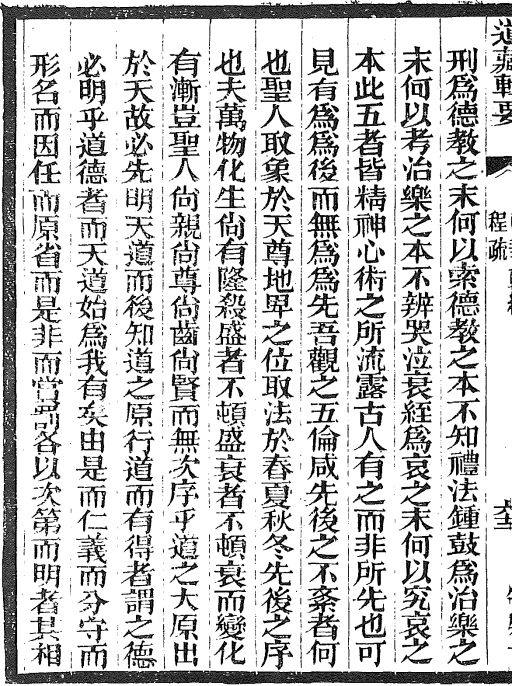 道藏輯要
程疏
刑爲德教之末何以索德教之本不知禮法鍾鼓爲治樂之
末何以考治樂之本不辨哭泣衰絰爲哀之末何以究哀之
本此五者皆精神心術之所流露古人有之而非所先也可
見有爲爲後而無爲爲先吾觀之五倫咸先後之不紊者何
也聖人取象於天尊地卑之位取法於春夏秋冬先後之序
也夫萬物化生尙有隆殺盛者不頓盛衰者不頓衰而變化
有漸豈聖人尙親尙尊尙齒尙賢而無次序乎道之大原出
於天故必先明天道而後知道之原行道而有得者謂之德
必明乎道德者而天道始爲我有矣由是而仁義而分守而
形名而因任而原省而是非而賞罰各以次第而明者其相